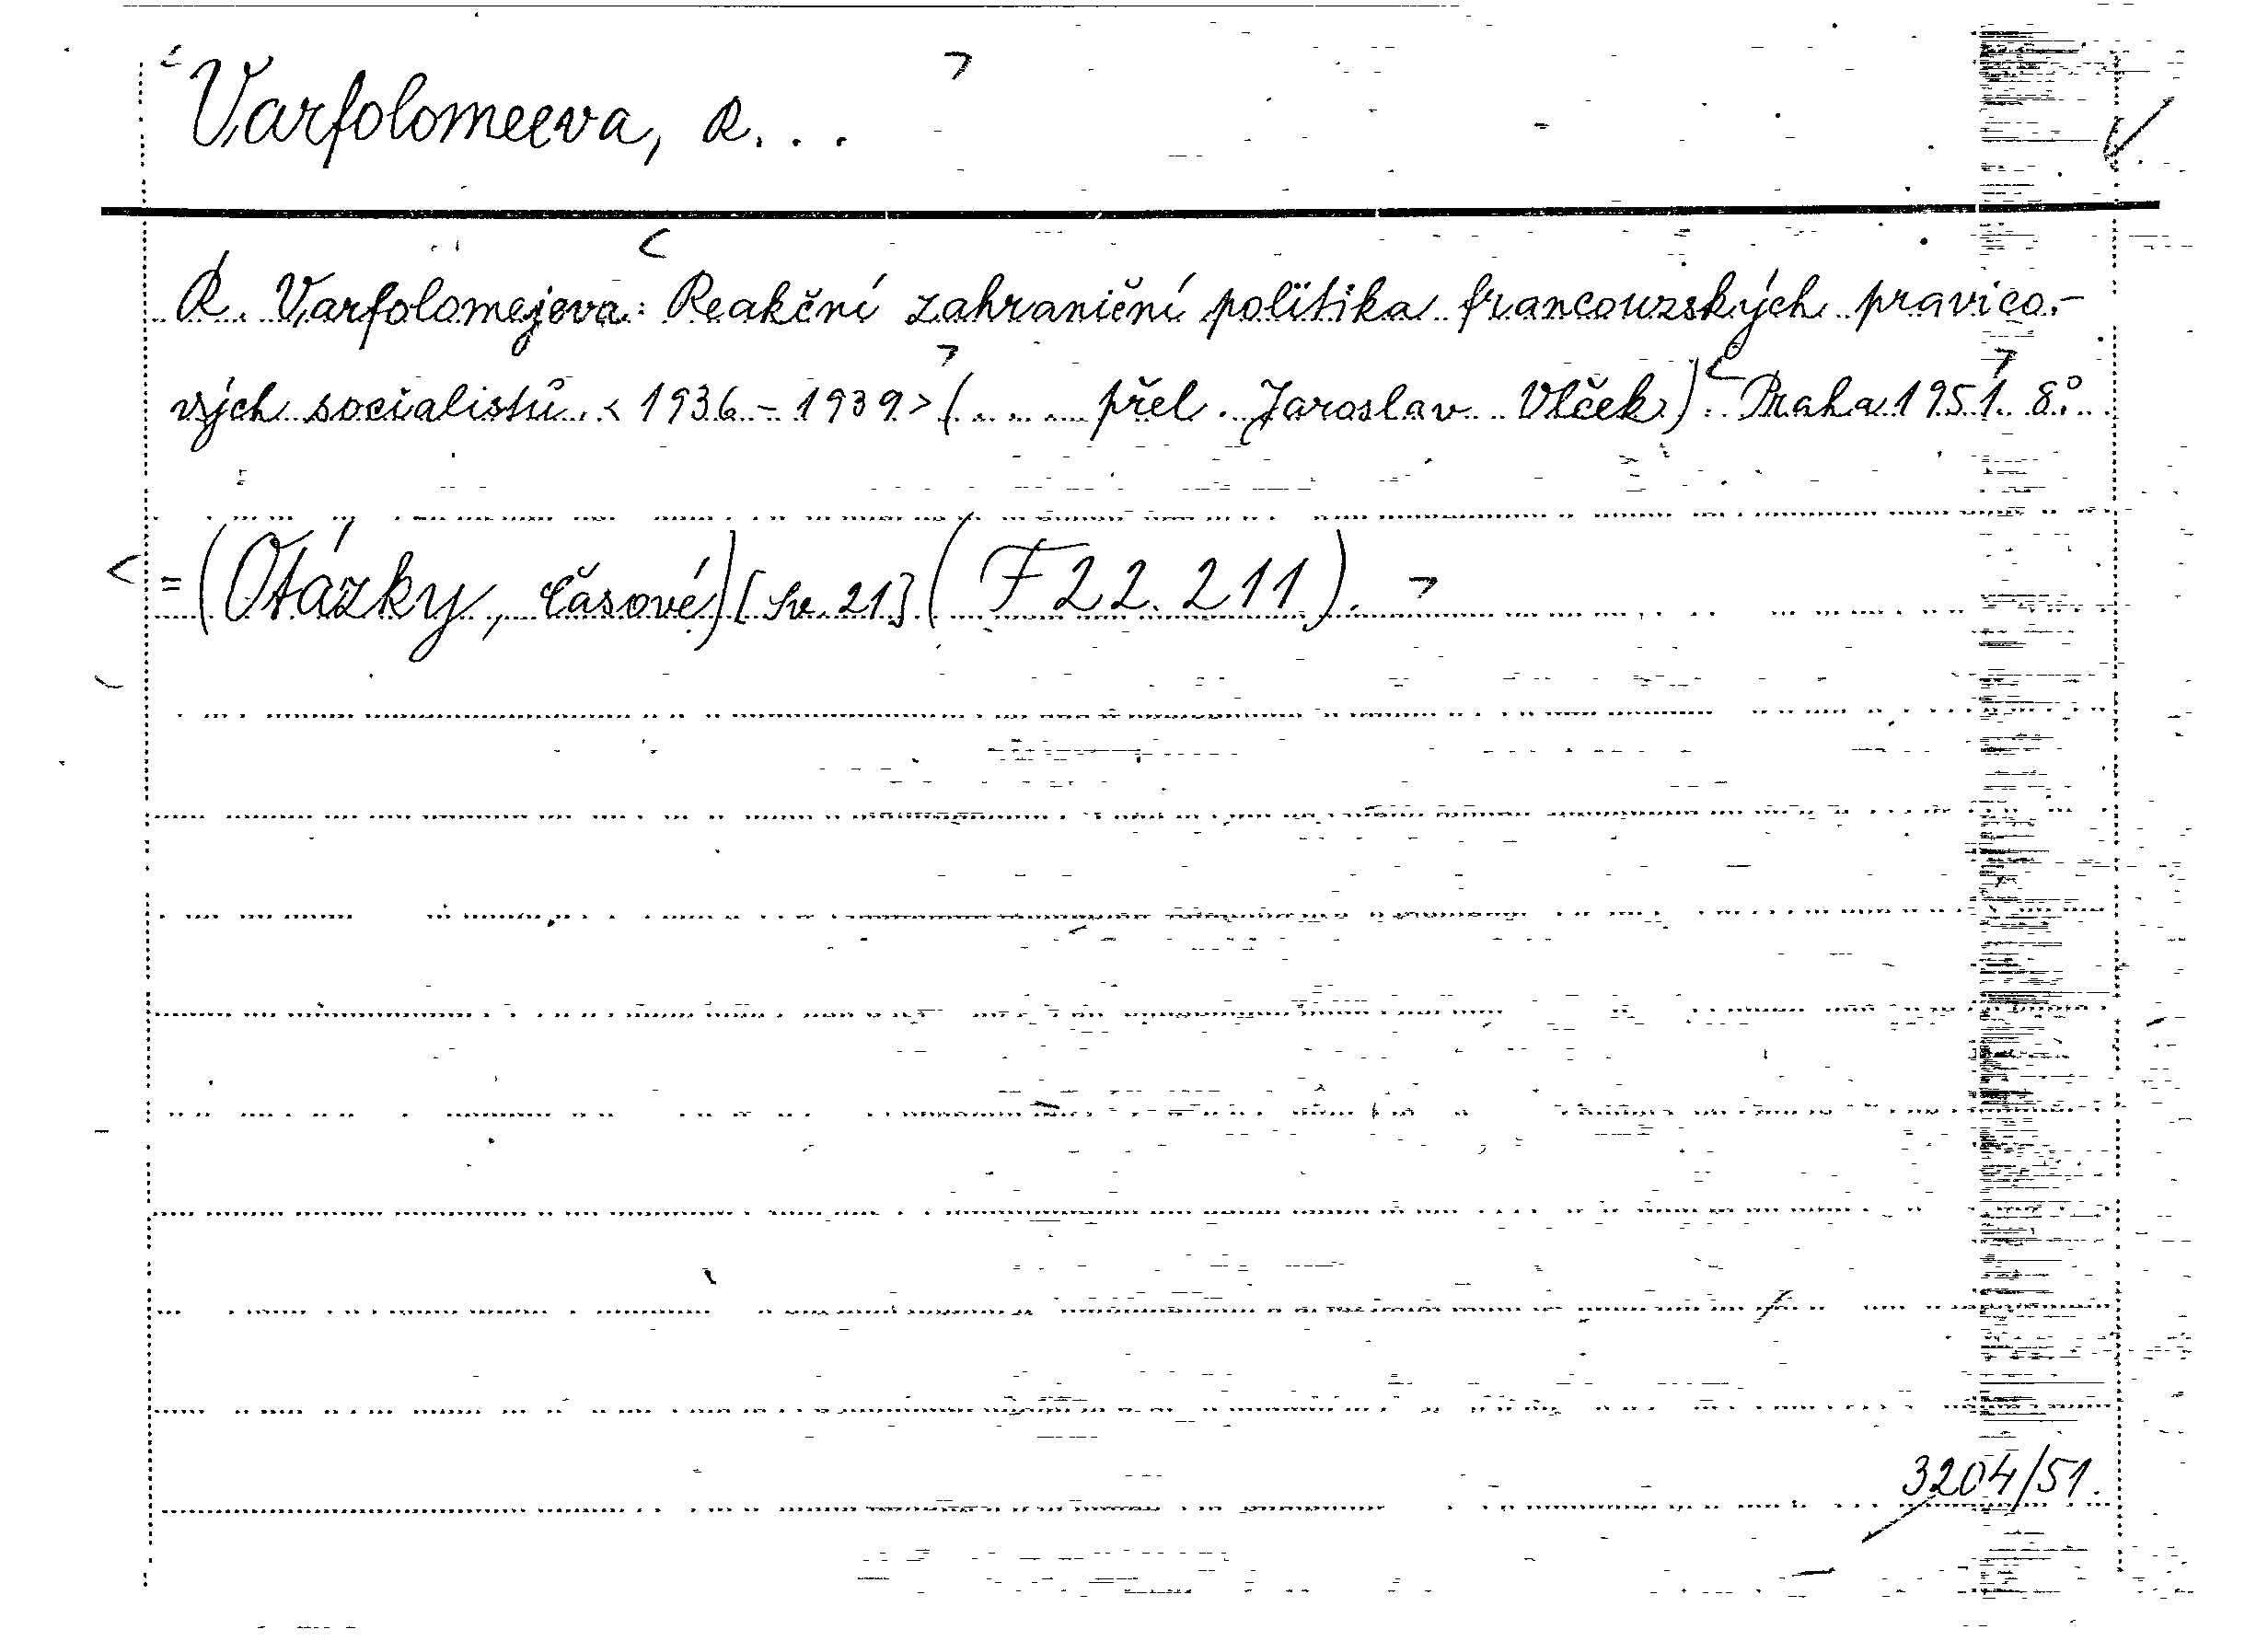 Varfolomeeva, R. . .
R. Varfolomejeva: Reakční zahraniční politika francouzských pravico-
vých socialistů <1936-1939> (.... přel. Jaroslav Vlček). Praha 1951. 8°.
=(Otázky, časové) [Sv. 21] (F 22.211).
3204/51.